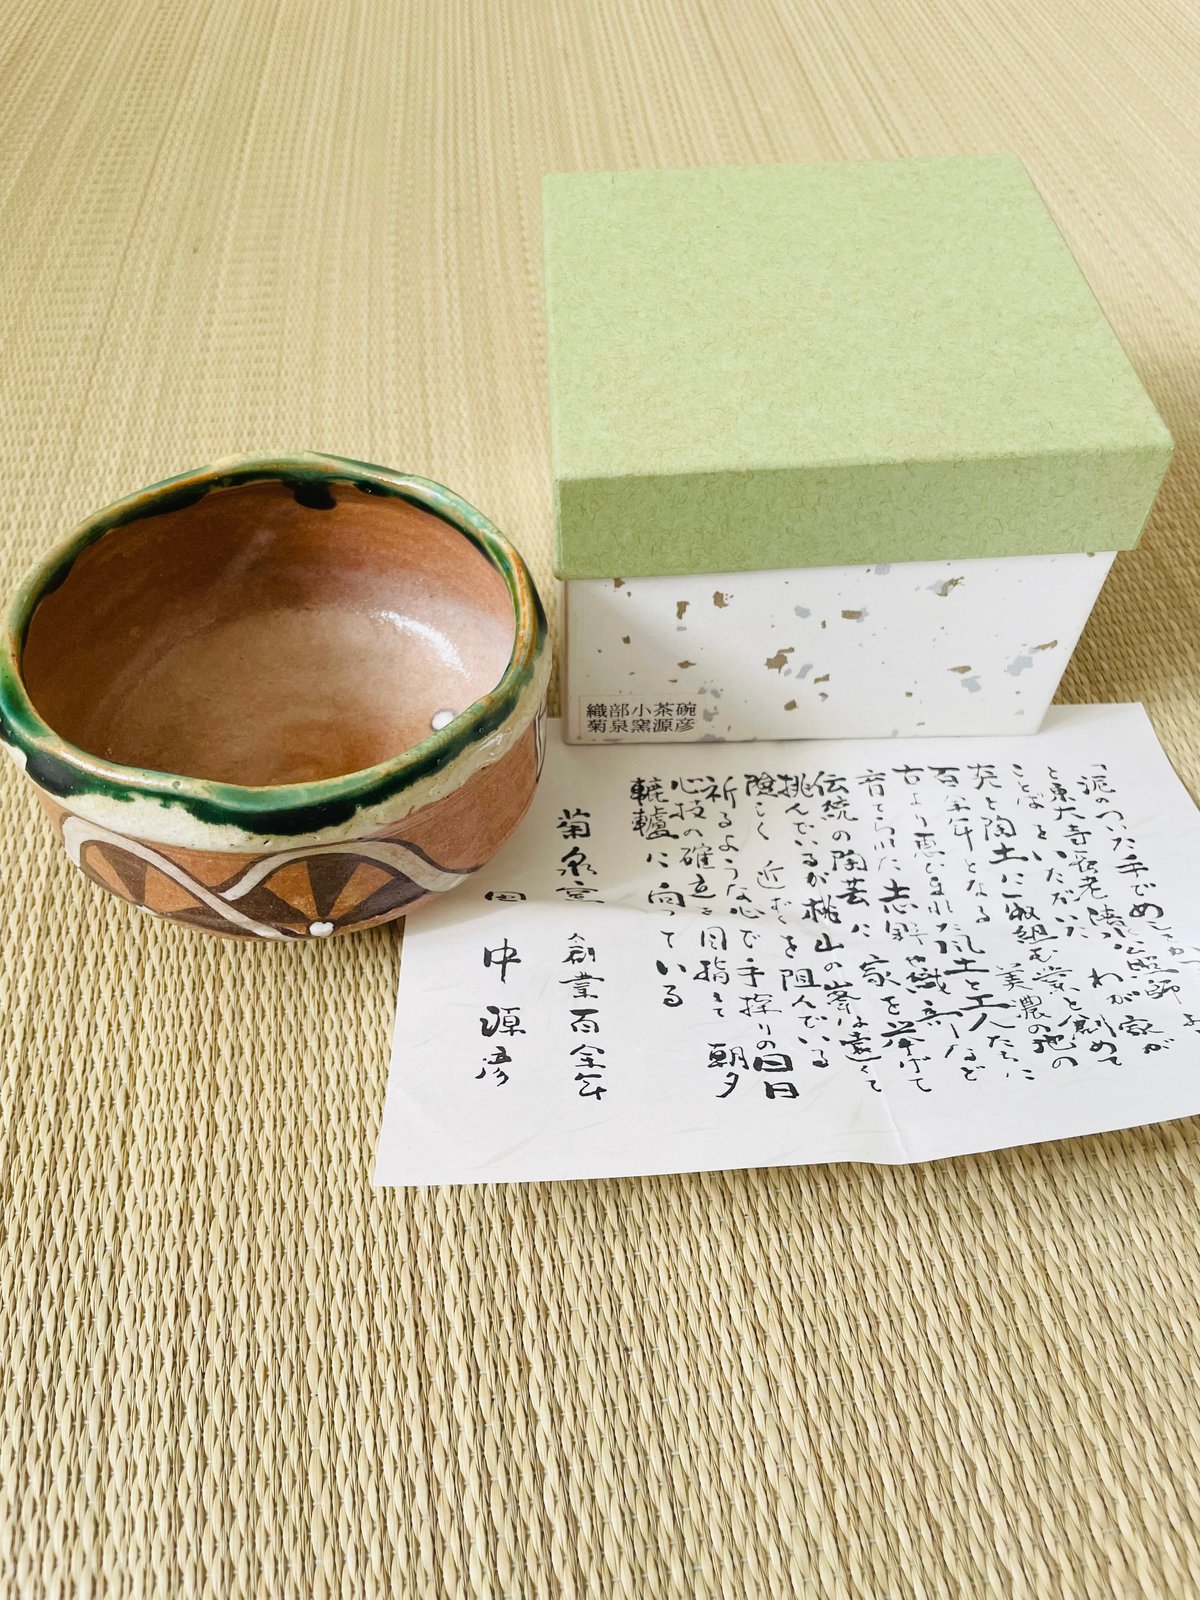 織部小茶碗
菊泉窯源彦
「泥のついた手でめしをかつ
と東大寺長老 公照師
ことばをいただいた わが家が
炎と陶土に取組む業を創めて
百年となる 美濃の地の
古より恵まれた風土と工人たちに
育てられた志野や織部など
伝統の陶芸に 家を挙げて
挑んでいるが桃山の峯は遠くて
険しく 近づくを阻んでいる
祈るような心で手探りの日日
心技の確立を目指して 朝夕
轆轤に向っている
菊泉窯 創業百年
田中源彦